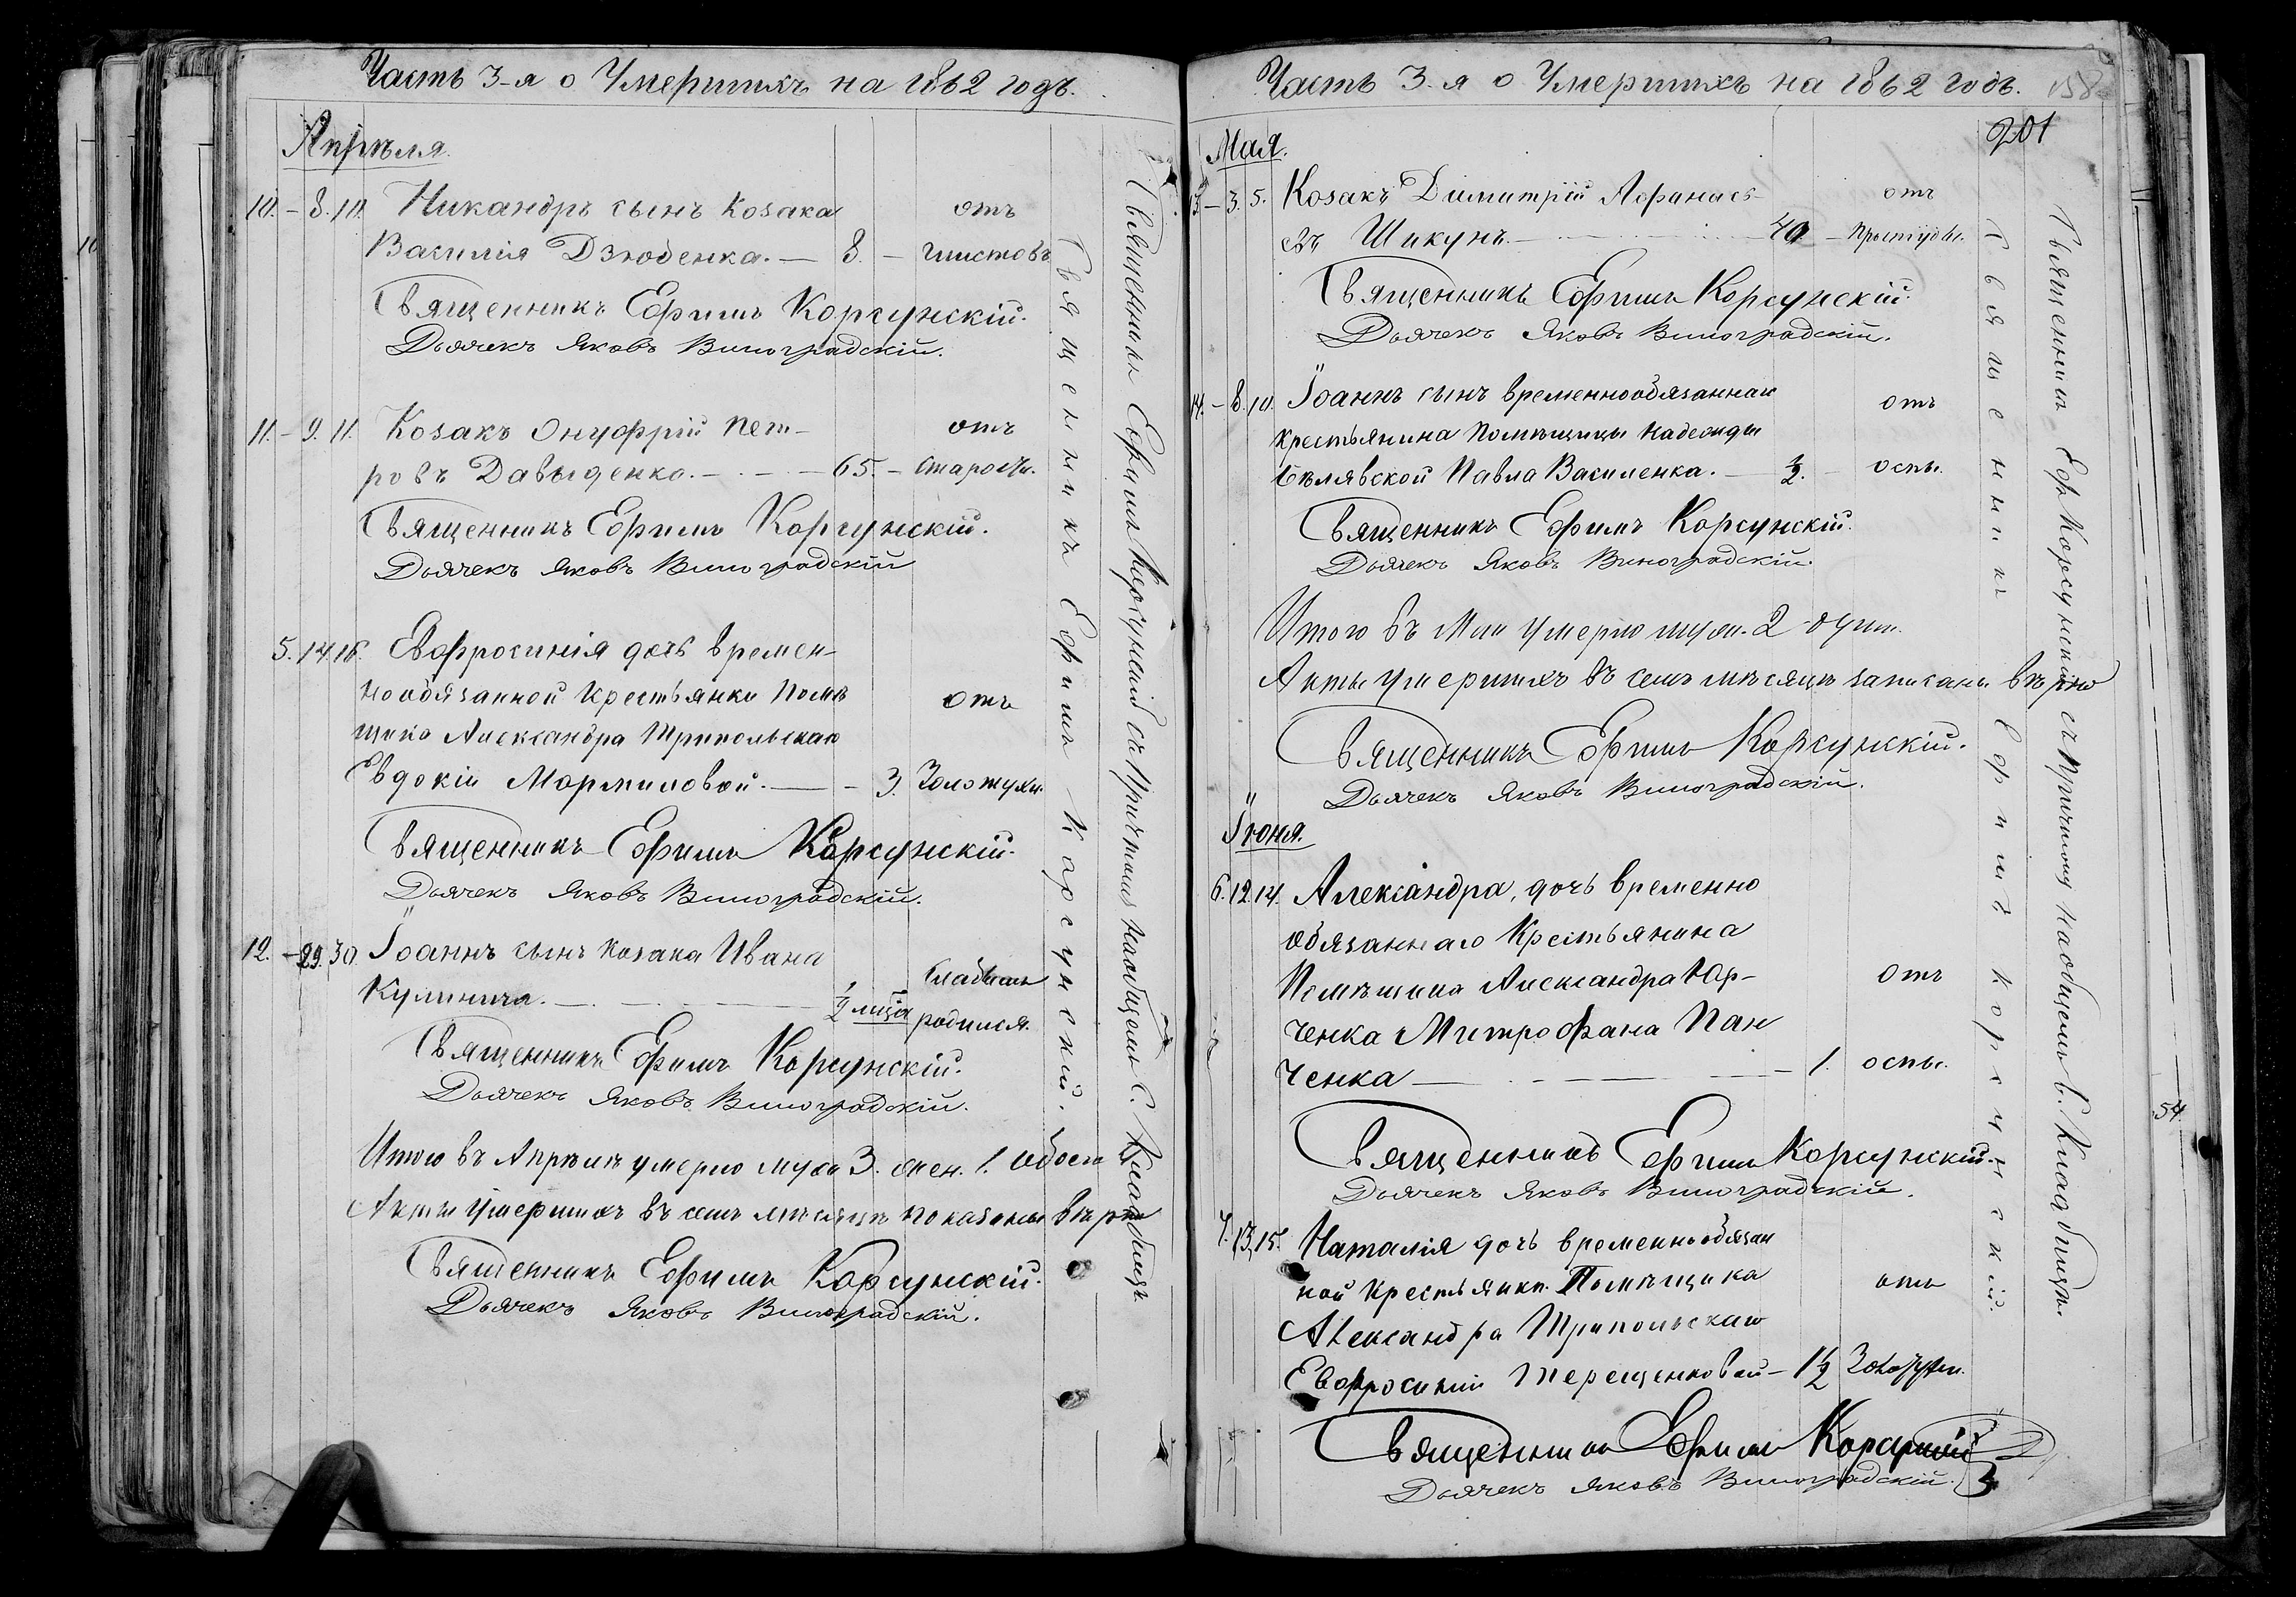 Часть 3-я о Умершихъ на 1862 годъ.
Апрѣля.
10. - 8. 10. Никандръ сынъ козака отъ
Василія Дзюбенка. — 8. — глистовъ
Священникъ Ефимъ Корсунскій.
Дьячекъ Яковъ Виноградскій.
11. - 9. 11. Козакъ Онуфрій Пет- отъ
ровъ Давыденко. — 65. — старости.
Священникъ Ефимъ Корсунскій.
Дьячекъ Яковъ Виноградскій
5. 14. 16. Евфросинія дочь времен-
нообязанной крестьянки Помѣ отъ
щика Александра Трипольскаго
Евдокіи Мормиловой. — 3. Золотухи.
Священникъ Ефимъ Корсунскій.
Дьячекъ Яковъ Виноградскій.
12. - 29. 30. Іоаннъ сынъ козака Ивана
Кулинича. — родился.
Священникъ Ефимъ Корсунскій.
Дьячекъ Яковъ Виноградскій.
Итого въ Апрѣлѣ умерло муж 3. жен. 1. обоего
Акты умершихъ въ семъ мѣсяцѣ показаны вѣрно
Священникъ Ефимъ Корсунскій.
Дьячекъ Яковъ Виноградскій.
Священникъ Ефимъ Корсунскій.
Священникъ Ефимъ Корсунскій съ причтомъ на общемъ с. Кладбищѣ.
Часть 3-я о Умершихъ на 1862 годъ. 158
201
Мая.
13 - 3. 5. Козакъ Димитрій Афанасъ- отъ
евъ Шикунъ. — 40 — простуды.
Священникъ Ефимъ Корсунскій.
Дьячекъ Яковъ Виноградскій.
14. - 8. 10. Іоаннъ сынъ временнообязаннаго отъ
крестьянина Помѣщицы Надежды
Бѣлявской Павла Василенка. — 1/2. — оспы.
Священникъ Ефимъ Корсунскій.
Дьячекъ Яковъ Виноградскій.
Итого въ Маи умерло муж. 2 душ.
Акты умершихъ въ семъ мѣсяцѣ записаны вѣрно
Священникъ Ефимъ Корсунскій.
Дьячекъ Яковъ Виноградскій.
Іюня.
6. 12. 14. Александра, дочь временно
обязаннаго Крестьянина
Помѣщика Александра Юр- отъ
ченка Митрофана Пан
ченка — 1. оспы.
Священникъ Ефимъ Корсунскій.
Дьячекъ Яковъ Виноградскій.
7. 13. 15. Наталія дочь временнообязан
ной крестьянки Помѣщика отъ
Александра Трипольскаго
Евфросиніи Терещенковой — 1 1/2 Золотухи.
Священникъ Ефимъ Корсунскій
Дьячекъ Яковъ Виноградскій.
Священникъ Ефимъ Корсунскій.
Священникъ Еф. Корсунскій съ причтомъ на общемъ с. Кладбищѣ.
54
10